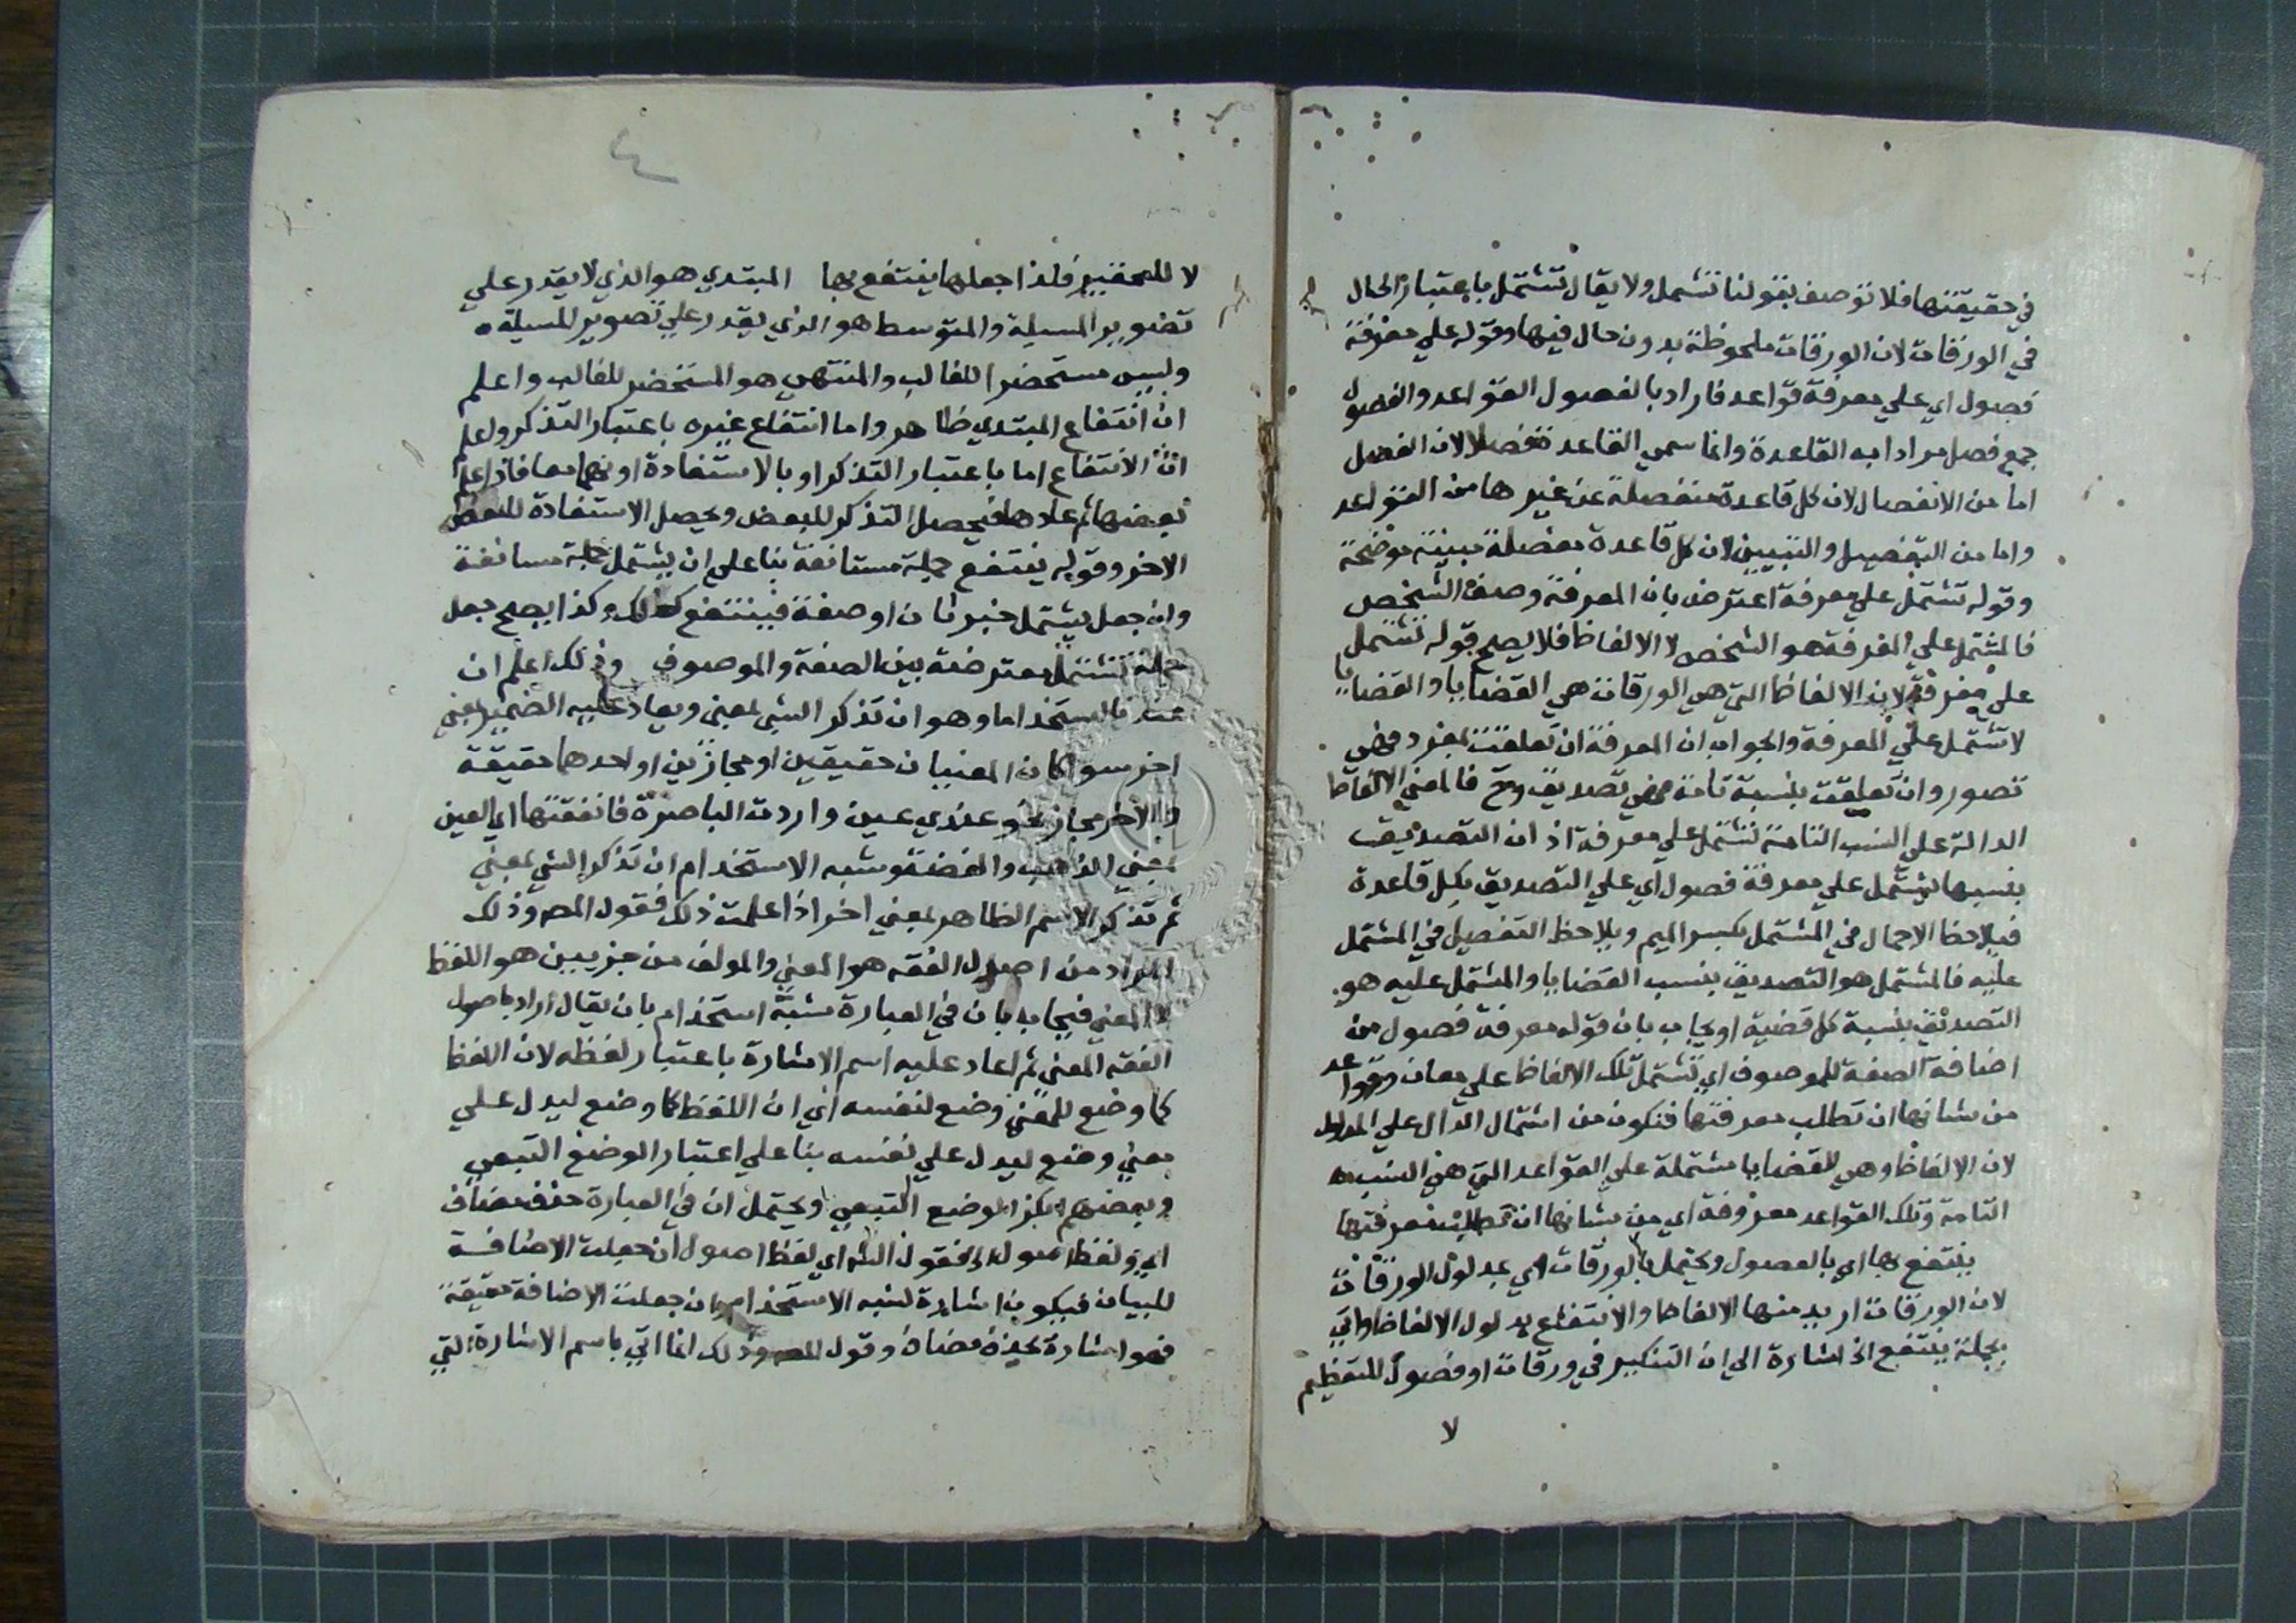 في حقيقتها فلا توصف بقولنا تشتمل ولا يقال تشتمل باعتبار الحال
في الورقات لان الورقات ملحوظة بدون حال فيها وقوله علي معرفة
فصول اي علي معرفة قواعد فاراد بالفصول القواعد والفصول
جمع فصل مرادا به القاعدة وانما سمي القاعدة فصلا لان الفصل
اما من الانفصال لان كل قاعدة منفصلة عن غيرها من القواعد
واما من التفصيل والتبيين لان كل قاعدة مفصلة مبينة موضحة
وقوله تشتمل علي معرفة اعترض بان المعرفة وصف الشخص
فالمشتمل علي المعرفة هو الشخص لا الالفاظ فلا يصح قوله تشتمل
علي معرفة لان الالفاظ التي هي الورقات هي القضايا والقضايا
لا تشتمل علي المعرفة والجواب ان المعرفة ان تعلقت بمفرد فهي
تصور وان تعلقت بنسبة تامة فهي تصديق وح فالمعني الالفاظ
الدالة علي النسب التامة تشتمل علي معرفة اذ ان التصديق
بنسبها يشتمل علي معرفة فصول اي علي التصديق بكل قاعدة
فيلاحظ الاجمال في المشتمل بكسر الميم ويلاحظ التفصيل في المشتمل
عليه فالمشتمل هو التصديق بنسب القضايا والمشتمل عليه هو
التصديق بنسبة كل قضية او يجاب بان قوله معرفة فصول من
اضافة الصفة للموصوف اي تشتمل تلك الالفاظ علي معان وقواعد
من شانها ان تطلب معرفتها فتكون من اشتمال الدال علي المدلول
لان الالفاظ وهي القضايا مشتملة علي القواعد التي هي النسب
التامة وتلك القواعد معروفة اي من شانها ان تطلب معرفتها
ينتفع بها اي بالفصول ويحتمل بالورقات اي بمدلول الورقات
لان الورقات اريد منها الالفاظ والانتفاع بمدلول الالفاظ واتي
بجملة ينتفع الخ اشارة الي ان التنكير في ورقات او فصول للتعظيم
لا
٤
لا للتحقير فلذا جعلها ينتفع بها المبتدي هو الذي لا يقدر علي
تصوير المسيلة والمتوسط هو الذي يقدر علي تصوير المسيلة
وليس مستحضرا للغالب والمنتهي هو المستحضر للغالب واعلم
ان انتفاع المبتدي ظاهر واما انتفاع غيره باعتبار التذكر واعلم
ان الانتفاع اما باعتبار التذكر او بالاستفادة او بهما معا فاذا علم
بعضها ثم علمها فيحصل التذكر للبعض ويحصل الاستفادة للبعض
الاخر وقوله ينتفع جملة مستانفة بنا علي ان يشتمل جملة مستانفة
وان جعل يشتمل خبر ثان او صفة فينتفع كذلك وكذا يصح جعل
جملة تشتمل معترضة بين الصفة والموصوف وذلك اعلم ان
عندنا استخداما وهو ان تذكر الشي بمعني ويعاد عليه الضمير بمعني
اخر سوا كان المعنيان حقيقيين او مجازين او احدهما حقيقة
والاخر مجاز نحو عندي عين واردت الباصرة فانفقتها اي العين
بمعني الذهب والفضة وشبه الاستخدام ان تذكر الشي بمعني
ثم تذكر الاسم الظاهر بمعني اخر اذا علمت ذلك فقول المص وذلك
المراد من اصول الفقه هو المعني والمولف من جزيين هو اللفظ
لا المعني فيجاب بان في العبارة شبه استخدام بان يقال اراد باصول
الفقه المعني ثم اعاد عليه اسم الاشارة باعتبار لفظه لان اللفظ
كما وضع للمعني وضع لنفسه اي ان اللفظ كما وضع ليدل علي
معني وضع ليدل علي نفسه بنا علي اعتبار الوضع التبعي
وبعضهم انكر الوضع التبعي ويحتمل ان في العبارة حذف مضاف
اي ولفظ اصول الخ فقول الش اي لفظ اصول ان جعلت الاضافة
للبيان فيكون اشارة لشبه الاستخدام وان جعلت الاضافة حقيقة
فهو اشارة لحذف مضاف وقول المص وذلك انما اتي باسم الاشارة التي